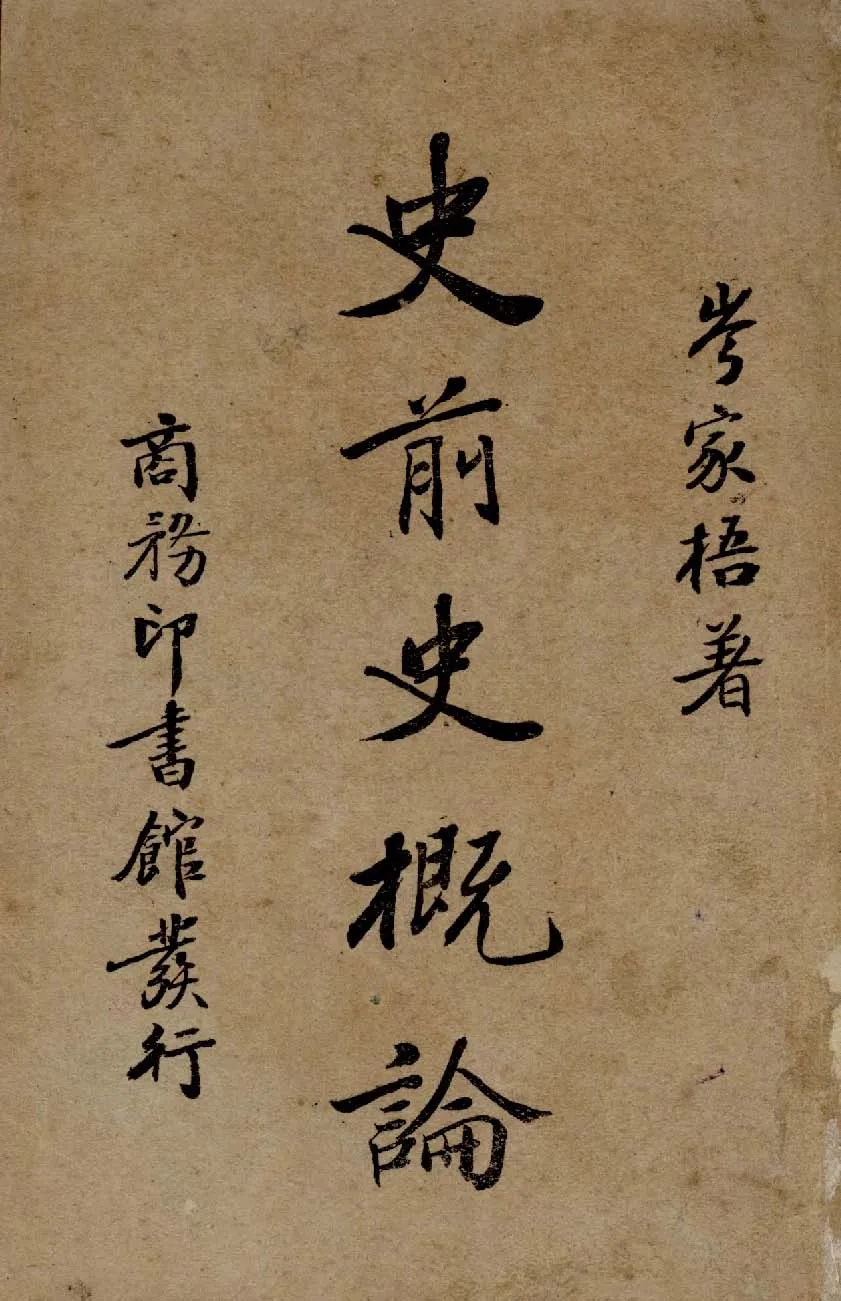 岑家梧著
史前史概論
商務印書館發行